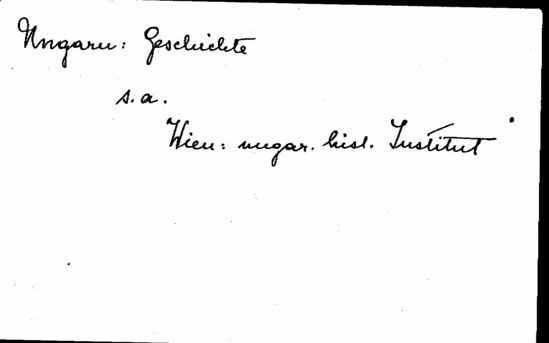 Ungarn: Geschichte
s.a.
Wien: ungar. hist. Institut